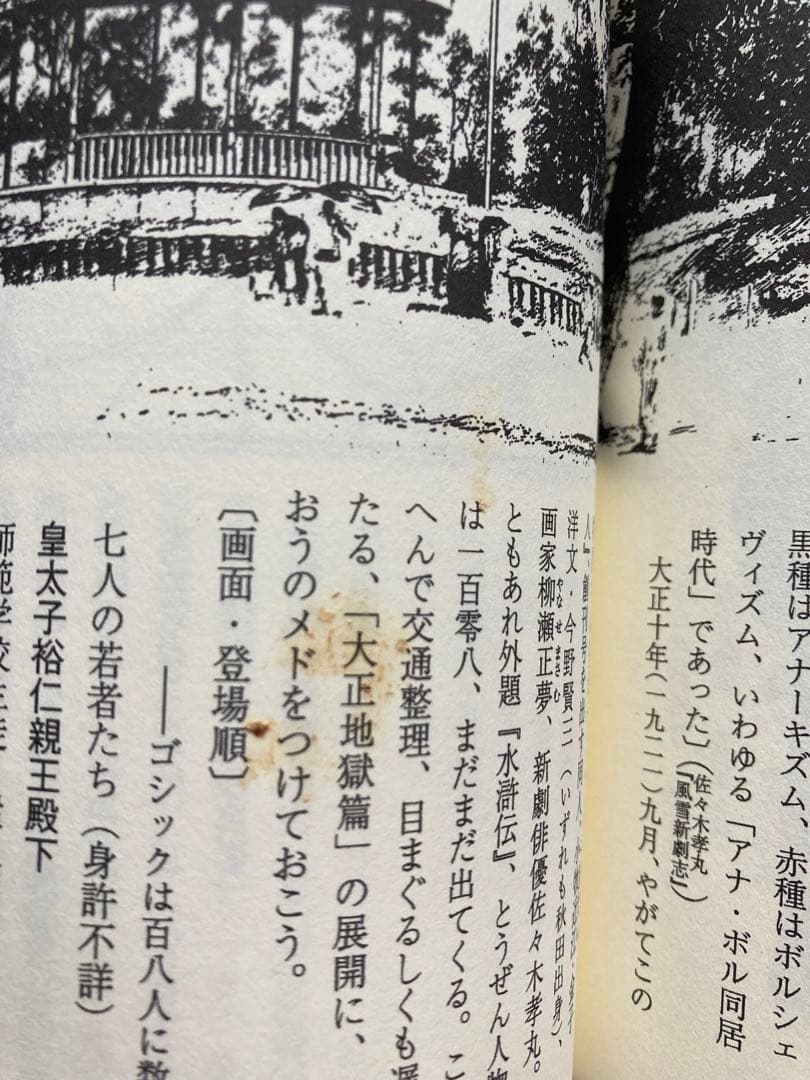 黒種はアナーキズム、赤種はボルシェ
ヴィズム、いわゆる「アナ・ボル同居
時代」であった〕(佐々木孝丸『風雪新劇志』)
大正十年(一九二一)九月、やがてこの
人』、創刊号を出す同人、
洋文・今野賢三(いずれも秋田出身)、
画家柳瀬正夢、新劇俳優佐々木孝丸。
やなせまさむ
ともあれ外題『水滸伝』、とうぜん人物
は一百零八、まだまだ出てくる。こ
へんで交通整理、目まぐるしくも
たる、「大正地獄篇」の展開に、
おうのメドをつけておこう。
〔画面・登場順〕
──ゴシックは百八人に数
七人の若者たち(身許不詳)
皇太子裕仁親王殿下
師範学校生徒